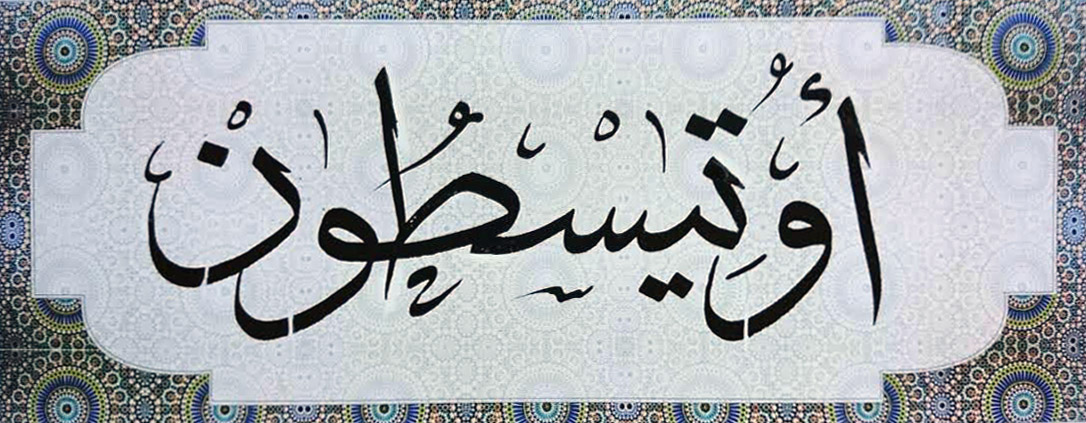 أُوتِيسْطُونْ